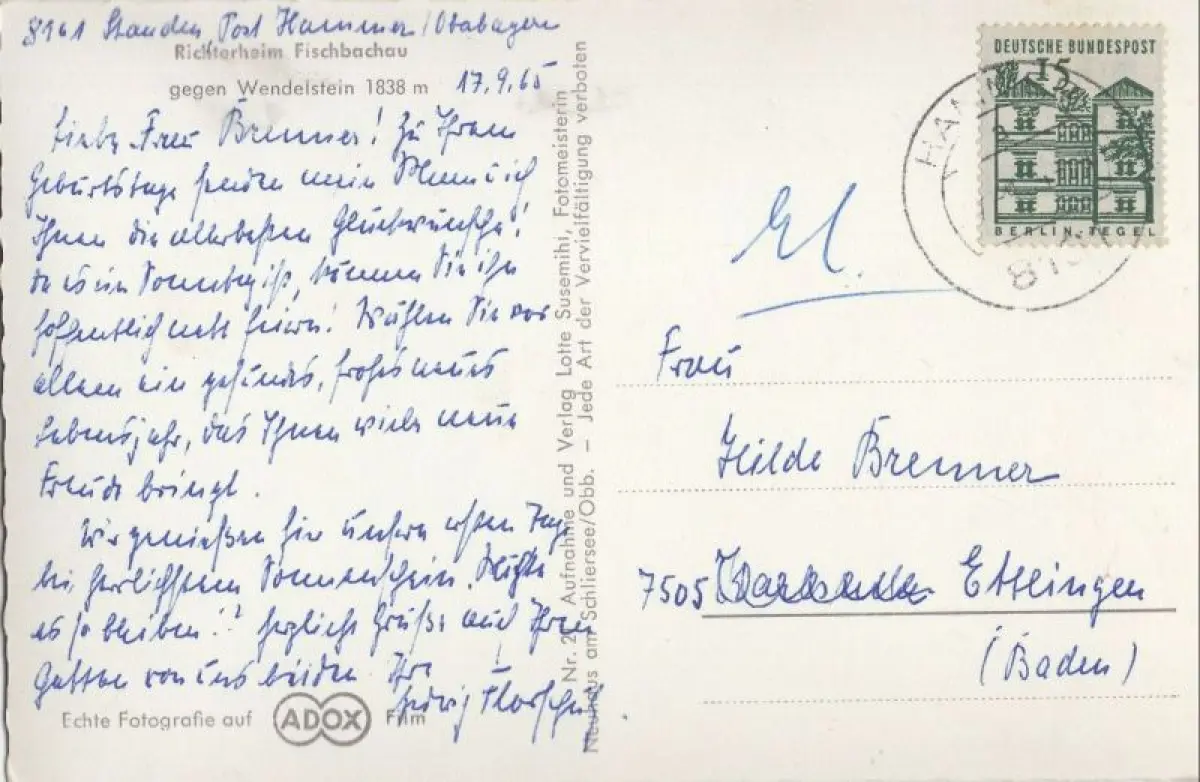 8161 Stauden, Post Hammer/Oberbayern
Richterheim Fischbachau
gegen Wendelstein 1838 m
17.9.65
Liebe Frau Brenner! Zu Ihrem
Geburtstage senden mein Mann u ich
Ihnen die allerbesten Glückwünsche!
Da es ein Sonntag ist, können Sie ihn
hoffentlich nett feiern! Wir wünschen Ihnen vor
allem ein gesundes, frohes neues
Lebensjahr, das Ihnen viele neue
Freude bringt.
Wir genießen hier unsere ersten Tage
bei herrlichstem Sonnenschein. Möchte
es so bleiben!! Herzliche Grüße auch Ihrem
Gatten von uns beiden. Ihre
Hedwig
Echte Fotografie auf ADOX Film
Nr. 2 Aufnahme und Verlag Lotte Susemihi, Fotomeisterin
Neuhaus am Schliersee/Obb. – Jede Art der Vervielfältigung verboten
DEUTSCHE BUNDESPOST
15
BERLIN-TEGEL
HA
8161
El.
Frau
Hilde Brenner
7505 Ettlingen
(Baden)